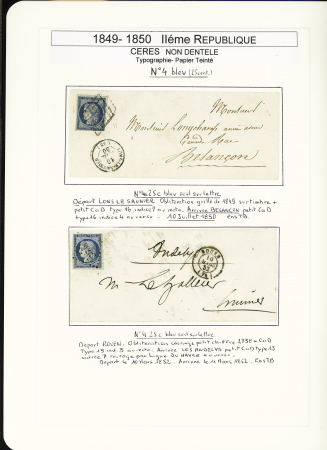 1849- 1850 IIéme REPUBLIQUE
CERES NON DENTELE
Typographie- Papier Teinté
N°4 bleu (25cent.)
Monsieur
Monsieur Longchamps
Grande Rue
Besançon
N°4a 25c bleu seul sur lettre
Départ LONS LE SAUNIER Oblitération grille de 1849 sur timbre +
petit CàD type 15 indice 1 au recto. Arrivée BESANCON petit CàD
type 15 indice 4 au verso - 10 Juillet 1850 en STB.
ROUEN
10
MARS
52
N°4 25c bleu seul sur lettre
Départ ROUEN: Oblitération losange petit chiffre 2738 + CàD
Type 15 ind. 3 au recto. Arrivée LES ANDELYS petit CàD type 13
Ligne DU HAVRE au verso.
Départ le 10 Mars 1852. Arrivée le 11 Mars 1852. En STB